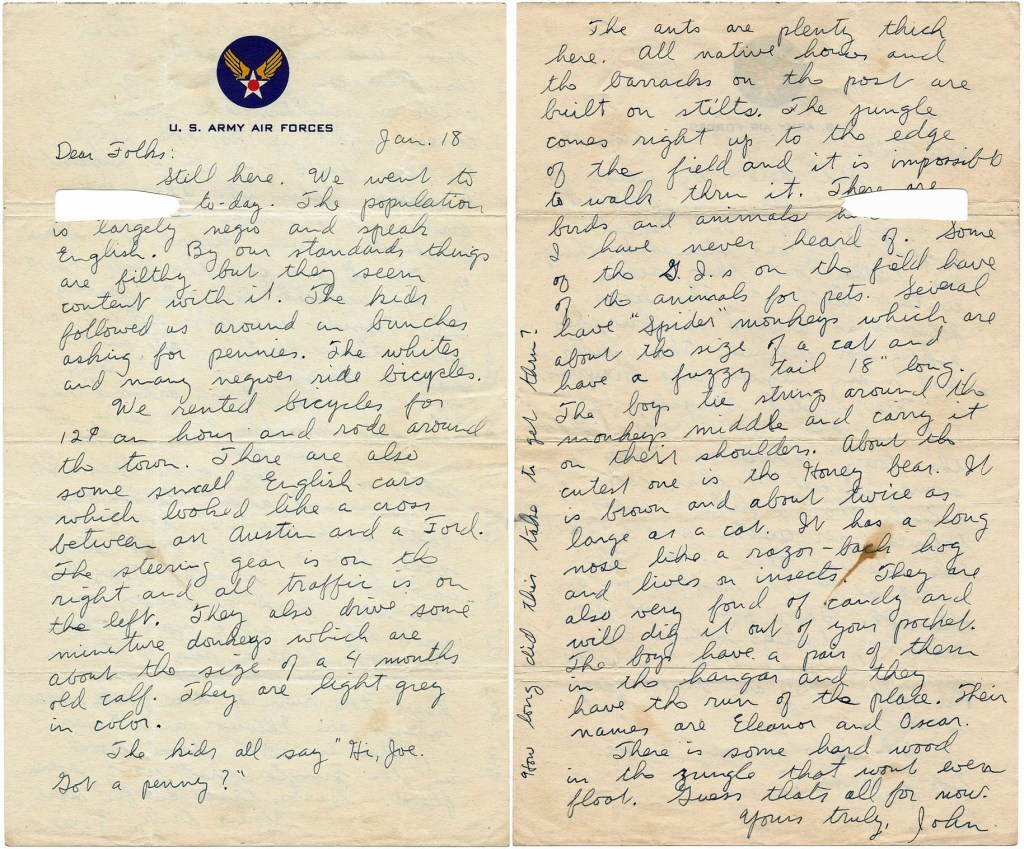 U. S. ARMY AIR FORCES
Jan. 18
Dear Folks:
Still here. We went to
to-day. The population
is largely negro and speak
English. By our standards things
are filthy but they seem
content with it. The kids
followed us around in bunches
asking for pennies. The whites
and many negroes ride bicycles.
We rented bicycles for
12¢ an hour and rode around
the town. There are also
some small English cars
which looked like a cross
between an Austin and a Ford.
The steering gear is on the
right and all traffic is on
the left. They also drive some
minature donkeys which are
about the size of a 4 months
old calf. They are light grey
in color.
The kids all say "Hi, Joe.
Got a penny?"
The ants are plenty thick
here. All native homes and
the barracks on the post are
built on stilts. The jungle
comes right up to the edge
of the field and it is impossible
to walk thru it. There are
birds and animals
I have never heard of. Some
of the G.I.s on the field have
of the animals for pets. Several
have "Spider" monkeys which are
about the size of a cat and
have a fuzzy tail 18" long.
The boys tie strings around the
monkeys middle and carry it
on their shoulders. About the
cutest one is the Honey bear. It
is brown and about twice as
large as a cat. It has a long
nose like a razor-back hog
and lives on insects. They are
also very fond of candy and
will dig it out of your pocket.
The boys have a pair of them
in the hangar and they
have the run of the place. Their
names are Eleanor and Oscar.
There is some hard wood
in the jungle that wont even
float. Guess thats all for now.
Yours truly, John
How long did this take to get thru?